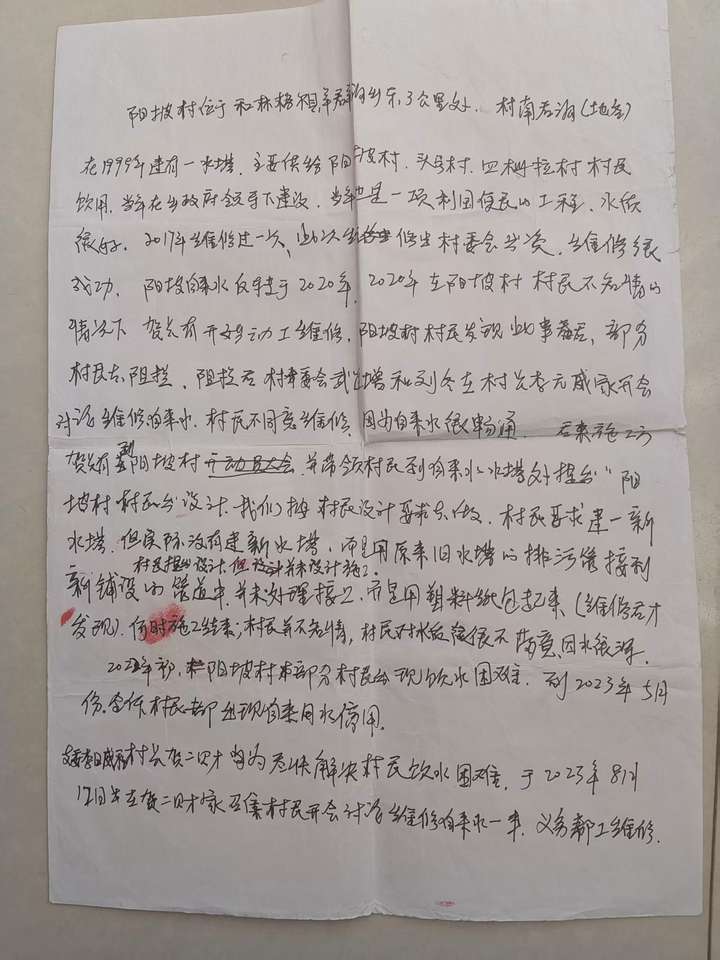 阳坡村位于和林格尔县羊群沟乡东3公里处. 村南右沟(地名)
在1999年建有一水塔. 主要供给阳坡村. 头号村. 四 村 村民
饮用. 当年在乡政府领导下建设. 当年也是一项利国便民的工程. 水质
很好. 2017年维修过一次, 此次维修由村委会出资. 维修很
成功. 阳坡自来水 于2020年. 2020年在阳坡村村民不知情的
情况下 贺占有开始动工维修. 阳坡村村民发现此事着后. 部分
村民去阻拦. 阻拦后村委会武 增和刘冬在村长李元威家开会
讨论维修自来水. 村民不同意维修. 因为自来水很畅通. 后来施工方
贺占有到阳坡村开动员大会 并带领村民到自来水水塔处提出"阳
坡村村民出设计. 我们按村民设计要求去做. 村民要求建一新
水塔. 但实际没有建新水塔. 而是用原来旧水塔的排污管接到
村民提出设计. 但 并未设计施工.
新铺设的管道中. 并未处理接口. 而是用塑料纸包起来(维修后才
发现). 何时施工结束, 村民并不知情, 村民对水质 很不满意. 因水很浑.
年初. 阳坡村部分村民出现饮水困难. 到2023年5月
份. 全体村民都出现自来水停用.
村长贺二见才为尽快解决村民饮水困难. 于2023年8月
12日在贺二见才家召集村民开会讨论维修自来水一事. 义务 工维修.